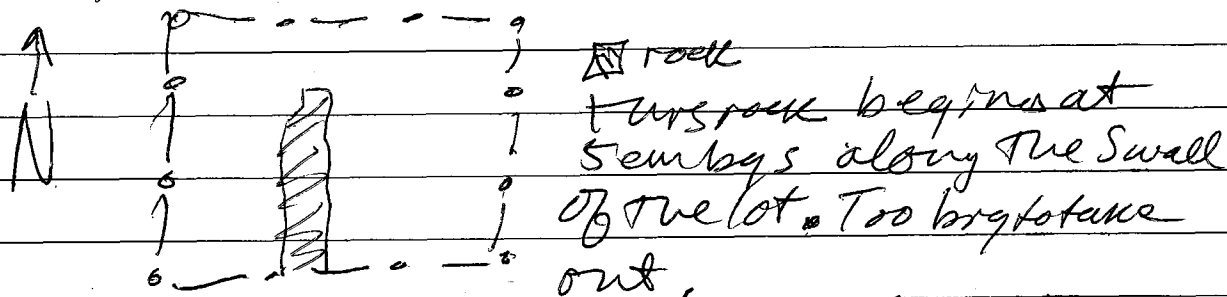 N
rock
this rock begins at
5cmbgs along the S wall
of the lot. Too big to take
out.